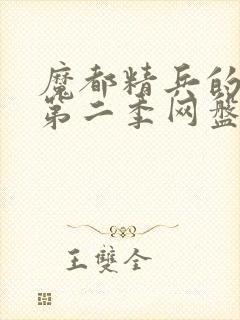 魔都精兵的
第二季网盘
王雙全